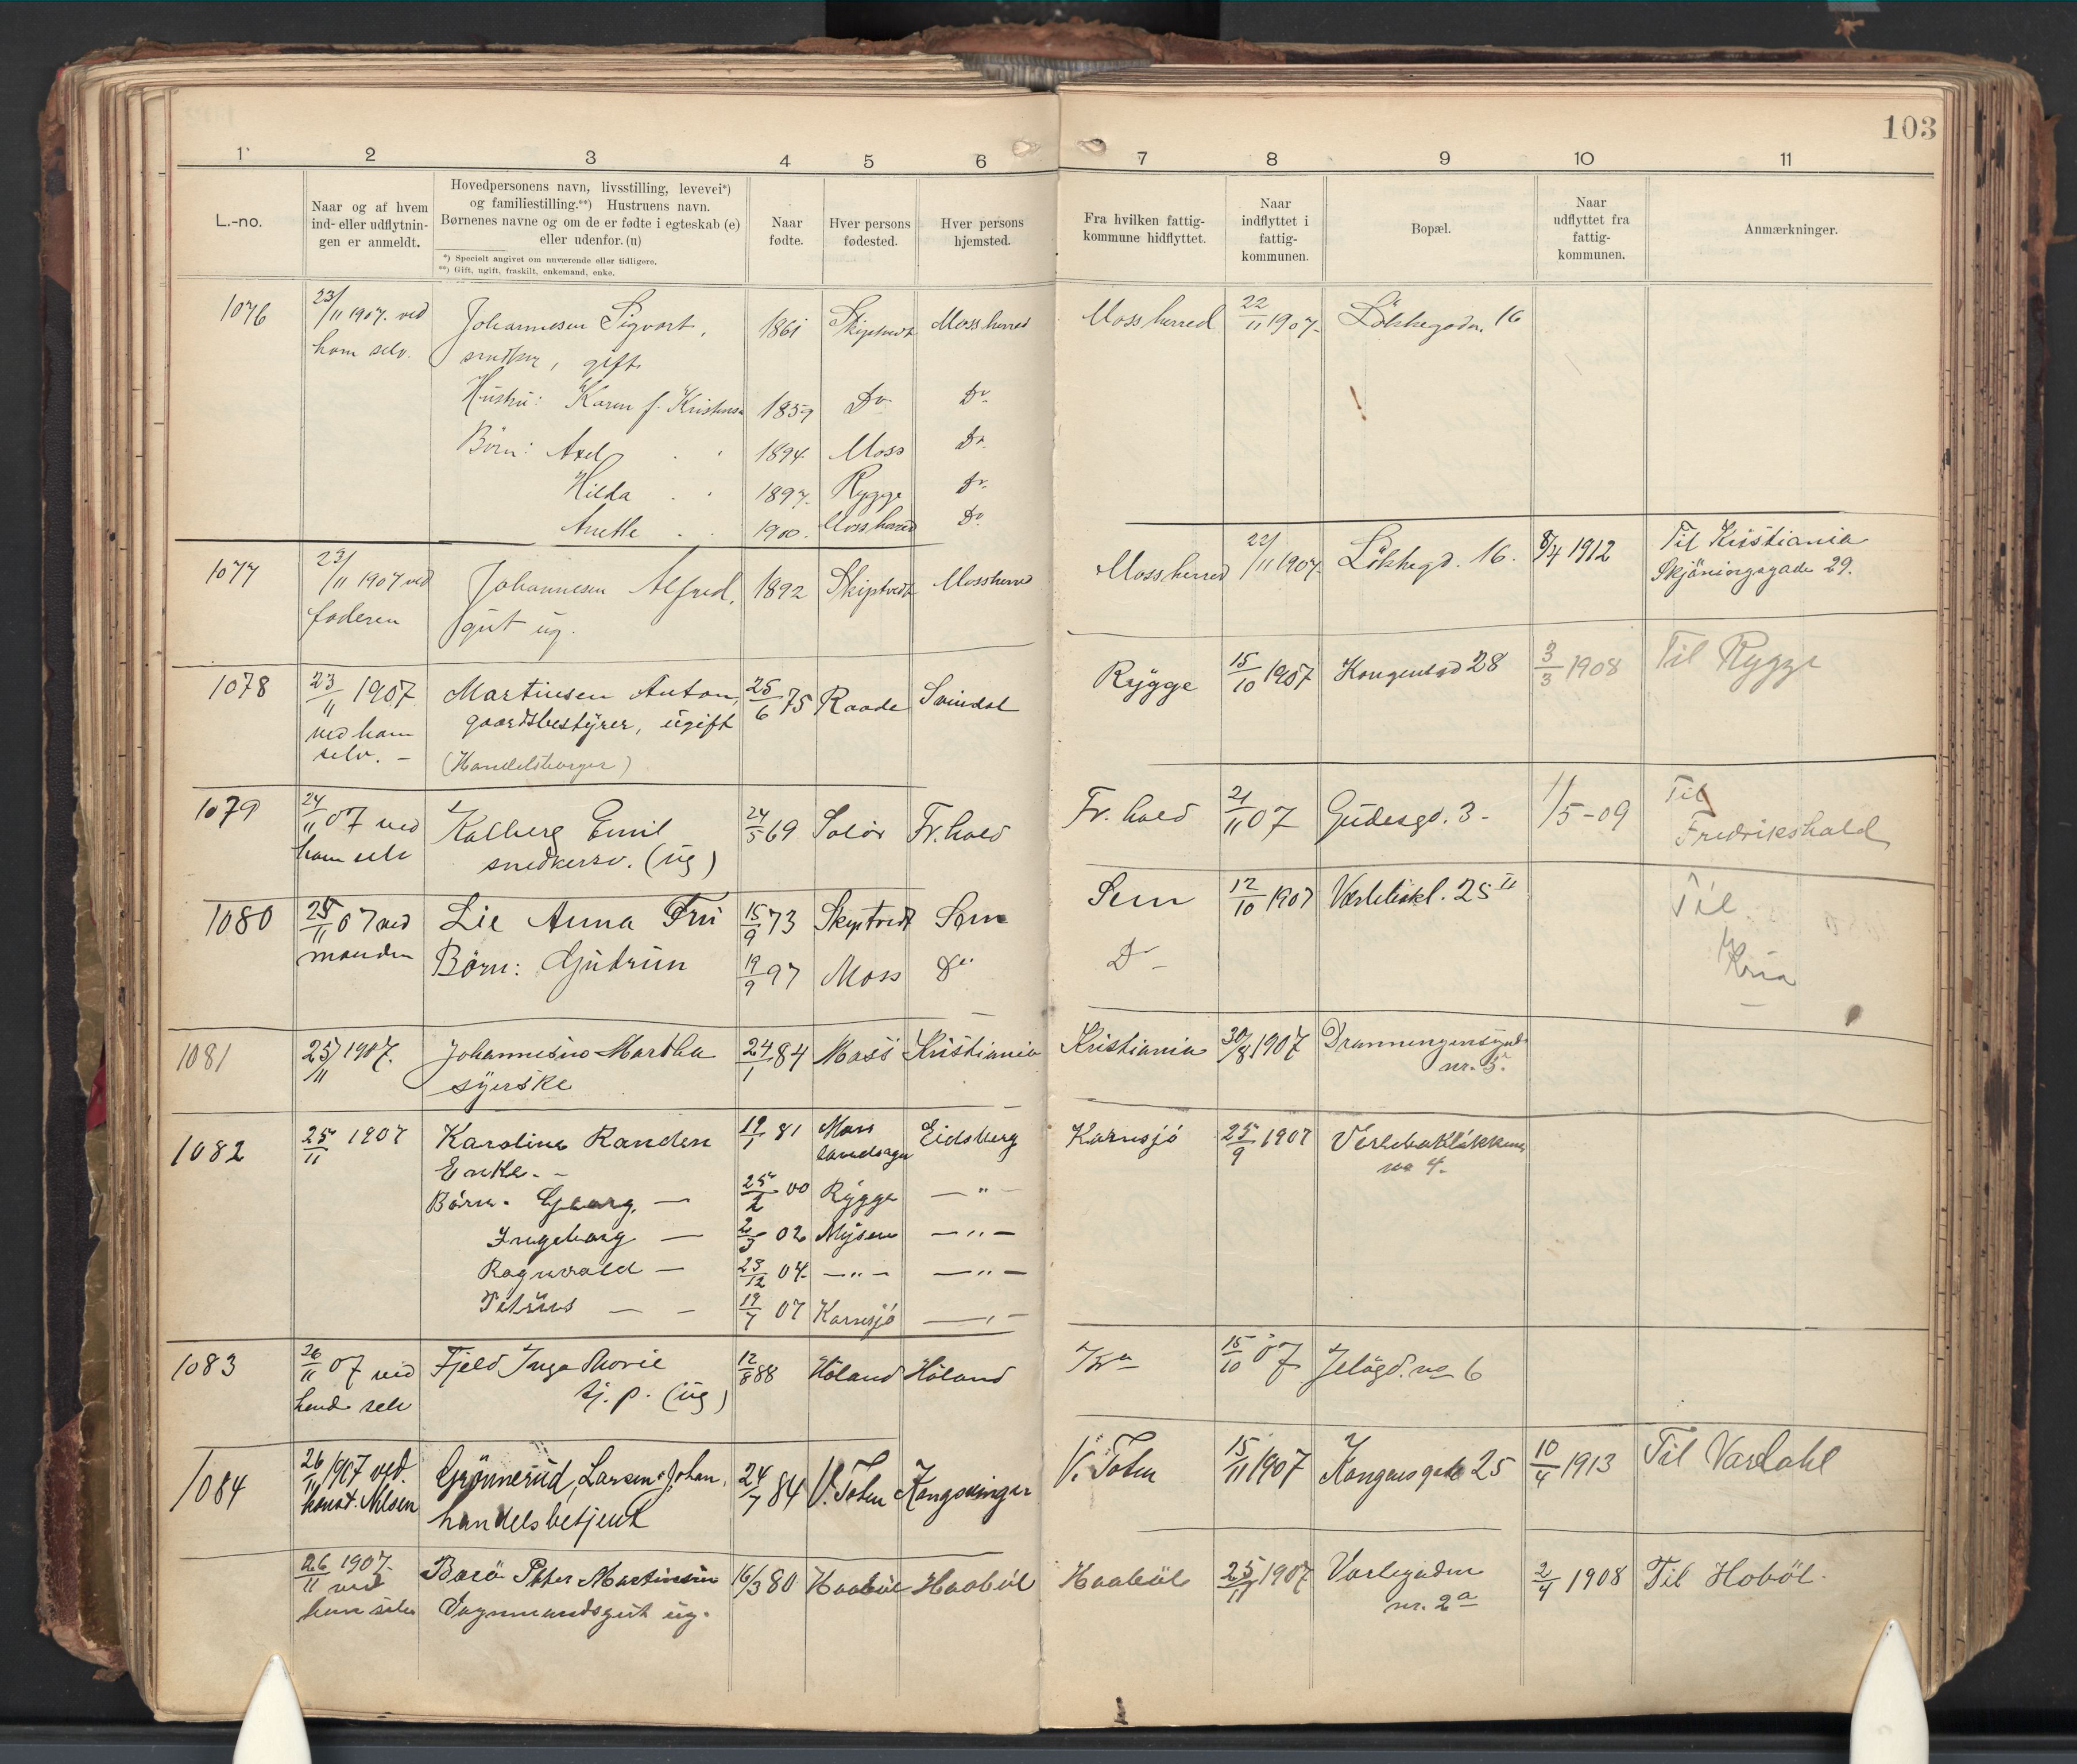 103
1 2 3 4 5 6 7 8 9 10 11
L.-no.
Naar og af hvem
ind- eller udflytnin-
gen er anmeldt.
Hovedpersonens navn, livsstilling, levevei*)
og familiestilling.**) Hustruens navn.
Børnenes navne og om de er fødte i egteskab (e)
eller udenfor. (u)
*) Specielt angivet om nuværende eller tidligere.
**) Gift, ugift, fraskilt, enkemand, enke.
Naar
fødte.
Hver persons
fødested.
Hver persons
hjemsted.
Fra hvilken fattig-
kommune hidflyttet.
Naar
indflyttet i
fattig-
kommunen.
Bopæl.
Naar
udflyttet fra
fattig-
kommunen.
Anmærkninger.
1076 23/11 1907. ved Johannesen Sigvart, 1861 Skiptvedt Moss herred Moss herred 22/11 1907. Løkkegadn. 16
ham selv. snedker, gift.
Hustru: Karen f. Kristensen 1859 Do Do
Börn: Axel 1894 Moss Do
Hilda 1897. Rygge Do
Anette 1900. Moss herred Do
1077 23/11 1907 ved Johannesen Alfred, 1892 Skiptvedt Moss herred Moss herred 22/11 1907. Løkkegd. 16. 8/4 1912 Til Kristiania
faderen gut ug. Skjöningsgade 29.
1078 23/11 1907 Martinsen Anton, 25/6 75 Raade Svindal Rygge 15/10 1907 Kongensgd 28 3/3 1908 Til Rygge
ved ham gaardsbestyrer, ugift
selv. – (Handelsborger)
1079 24/11 07 ved Kalberg Emil 24/5 69 Solör Fr. hald Fr. hald 21/11 07 Gudesgd. 3 - 1/5-09 Til
ham selv snedkersv. (ug) Fredrikshald
1080 25/11 07 ved Lie Anna Fru 15/9 73 Skiptvedt Sem Sem 12/10 1907 Værlebakl. 25 II Til
manden Börn: Gudrun 19/9 97 Moss Do Do Kria
1081 25/11 1907. Johannesen Martha 24/1 84 Moss Kristiania Kristiania 30/8 1907 Dronningensgade
syerske nr. 5.
1082 25/11 1907 Karoline Randen 19/1 81 Moss Eidsberg Kornsjö 25/9 1907 Verlebakløkken
Enke. - landsogn no 4.
Börn. Georg. — 25/2 00 Rygge — " —
Ingeborg — 2/3 02 Mysen — " —
Ragnvald — 23/12 04. — " — — " —
Petrus — – 19/7 07 Kornsjö — " —
1083 26/11 07 ved Fjeld Inga Marie 12/8 88 Höland Höland Kra 15/10 07 Jeløgd. no 6
hende selv tj. p. (ug)
1084 26/11 1907 ved. Grønnerud, Larsen, Johan, 24/7 84 V. Toten Kongsvinger V. Toten 15/11 1907 Kongensgade 25 10/4 1913 Til Vardahl
konst. Nilsen handelsbetjent
26/11 1907. Barö Peter Martinsen 16/3 80 Haaböl Haaböl Haaböl 25/11 1907 Varlegaden 2/4 1908 Til Hoböl.
ved
ham selv Vognmandsgut ug. nr. 2a